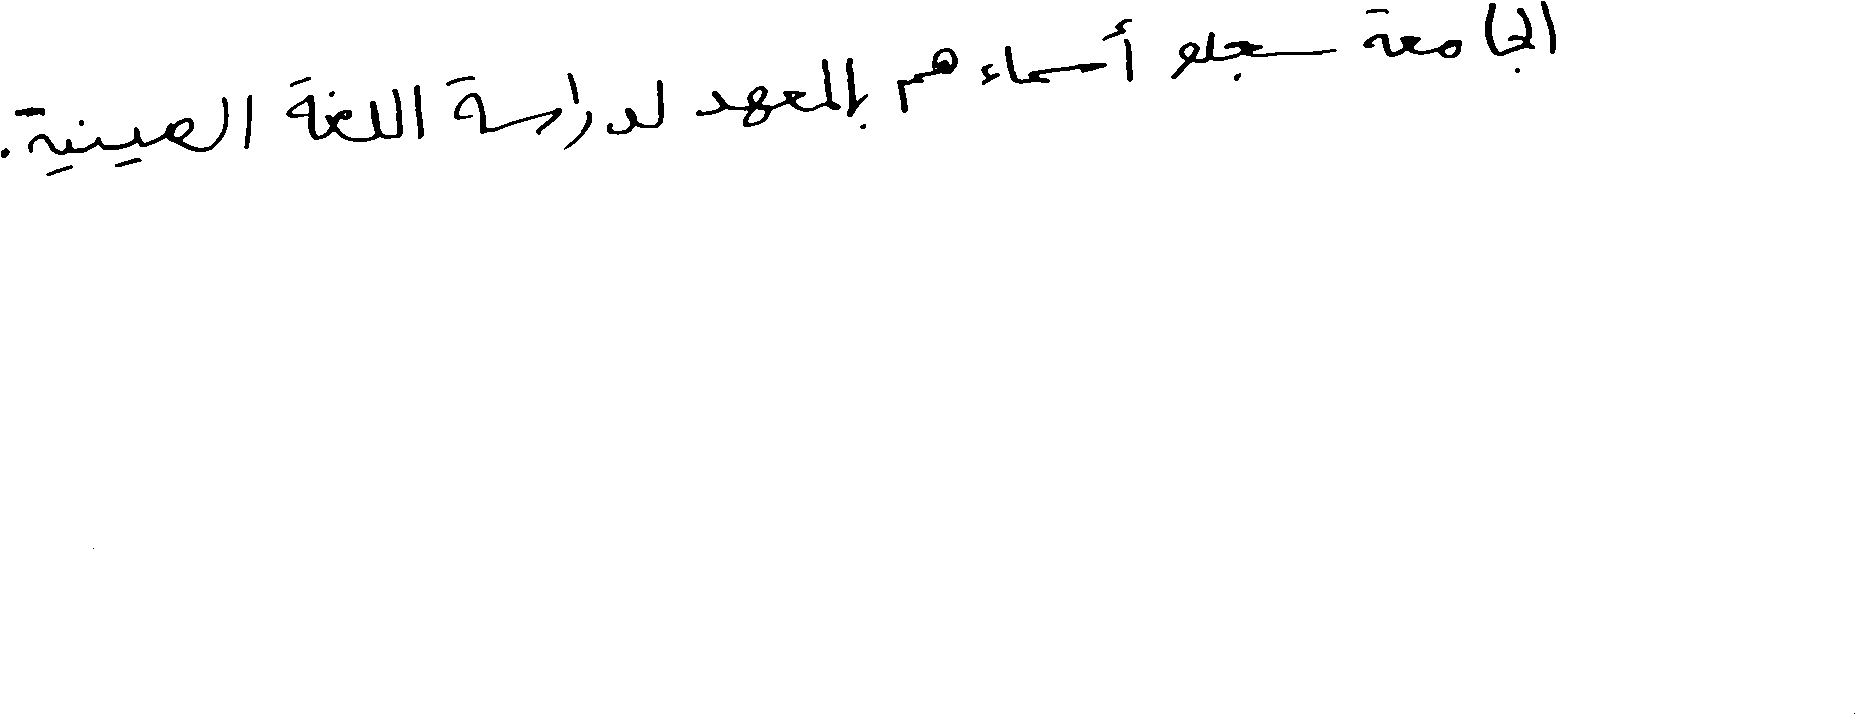 الجامعة سجلو أسماءهم بالمعهد لدراسة اللغة الصينية.